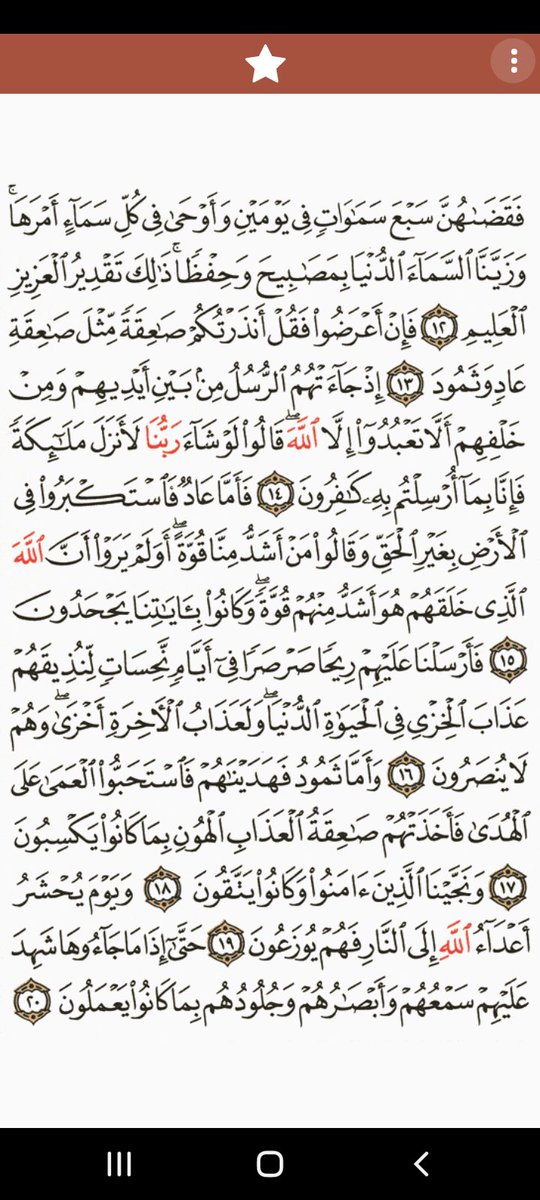 فَقَضَىٰهُنَّ سَبۡعَ سَمَٰوَاتٖ فِي يَوۡمَيۡنِ وَأَوۡحَىٰ فِي كُلِّ سَمَآءٍ أَمۡرَهَاۚ
وَزَيَّنَّا ٱلسَّمَآءَ ٱلدُّنۡيَا بِمَصَٰبِيحَ وَحِفۡظٗاۚ ذَٰلِكَ تَقۡدِيرُ ٱلۡعَزِيزِ
ٱلۡعَلِيمِ ١٢ فَإِنۡ أَعۡرَضُواْ فَقُلۡ أَنذَرۡتُكُمۡ صَٰعِقَةٗ مِّثۡلَ صَٰعِقَةِ
عَادٖ وَثَمُودَ ١٣ إِذۡ جَآءَتۡهُمُ ٱلرُّسُلُ مِنۢ بَيۡنِ أَيۡدِيهِمۡ وَمِنۡ
خَلۡفِهِمۡ أَلَّا تَعۡبُدُوٓاْ إِلَّا ٱللَّهَۖ قَالُواْ لَوۡ شَآءَ رَبُّنَا لَأَنزَلَ مَلَٰٓئِكَةٗ
فَإِنَّا بِمَآ أُرۡسِلۡتُم بِهِۦ كَٰفِرُونَ ١٤ فَأَمَّا عَادٞ فَٱسۡتَكۡبَرُواْ فِي
ٱلۡأَرۡضِ بِغَيۡرِ ٱلۡحَقِّ وَقَالُواْ مَنۡ أَشَدُّ مِنَّا قُوَّةًۖ أَوَلَمۡ يَرَوۡاْ أَنَّ ٱللَّهَ
ٱلَّذِي خَلَقَهُمۡ هُوَ أَشَدُّ مِنۡهُمۡ قُوَّةٗۖ وَكَانُواْ بِـَٔايَٰتِنَا يَجۡحَدُونَ
١٥ فَأَرۡسَلۡنَا عَلَيۡهِمۡ رِيحٗا صَرۡصَرٗا فِيٓ أَيَّامٖ نَّحِسَاتٖ لِّنُذِيقَهُمۡ
عَذَابَ ٱلۡخِزۡيِ فِي ٱلۡحَيَوٰةِ ٱلدُّنۡيَاۖ وَلَعَذَابُ ٱلۡأٓخِرَةِ أَخۡزَىٰۖ وَهُمۡ
لَا يُنصَرُونَ ١٦ وَأَمَّا ثَمُودُ فَهَدَيۡنَٰهُمۡ فَٱسۡتَحَبُّواْ ٱلۡعَمَىٰ عَلَى
ٱلۡهُدَىٰ فَأَخَذَتۡهُمۡ صَٰعِقَةُ ٱلۡعَذَابِ ٱلۡهُونِ بِمَا كَانُواْ يَكۡسِبُونَ
١٧ وَنَجَّيۡنَا ٱلَّذِينَ ءَامَنُواْ وَكَانُواْ يَتَّقُونَ ١٨ وَيَوۡمَ يُحۡشَرُ
أَعۡدَآءُ ٱللَّهِ إِلَى ٱلنَّارِ فَهُمۡ يُوزَعُونَ ١٩ حَتَّىٰٓ إِذَا مَا جَآءُوهَا شَهِدَ
عَلَيۡهِمۡ سَمۡعُهُمۡ وَأَبۡصَٰرُهُمۡ وَجُلُودُهُم بِمَا كَانُواْ يَعۡمَلُونَ ٢٠